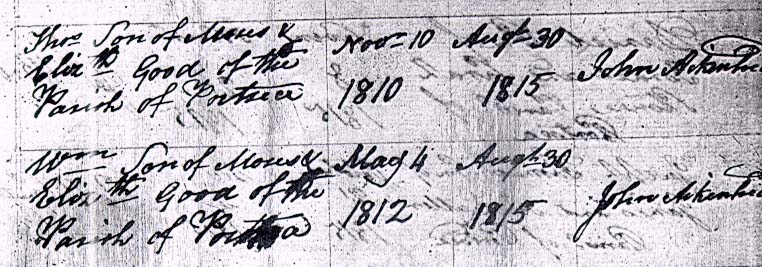 Thos Son of Moses & Novr 10 Augt 30
Eliz th Good of the John Aitkenhead
Parish of Portsea 1810 1815
Wm Son of Moses & May 4 Augt 30
Eliz th Good of the John Aitkenhead
Parish of Portsea 1812 1815